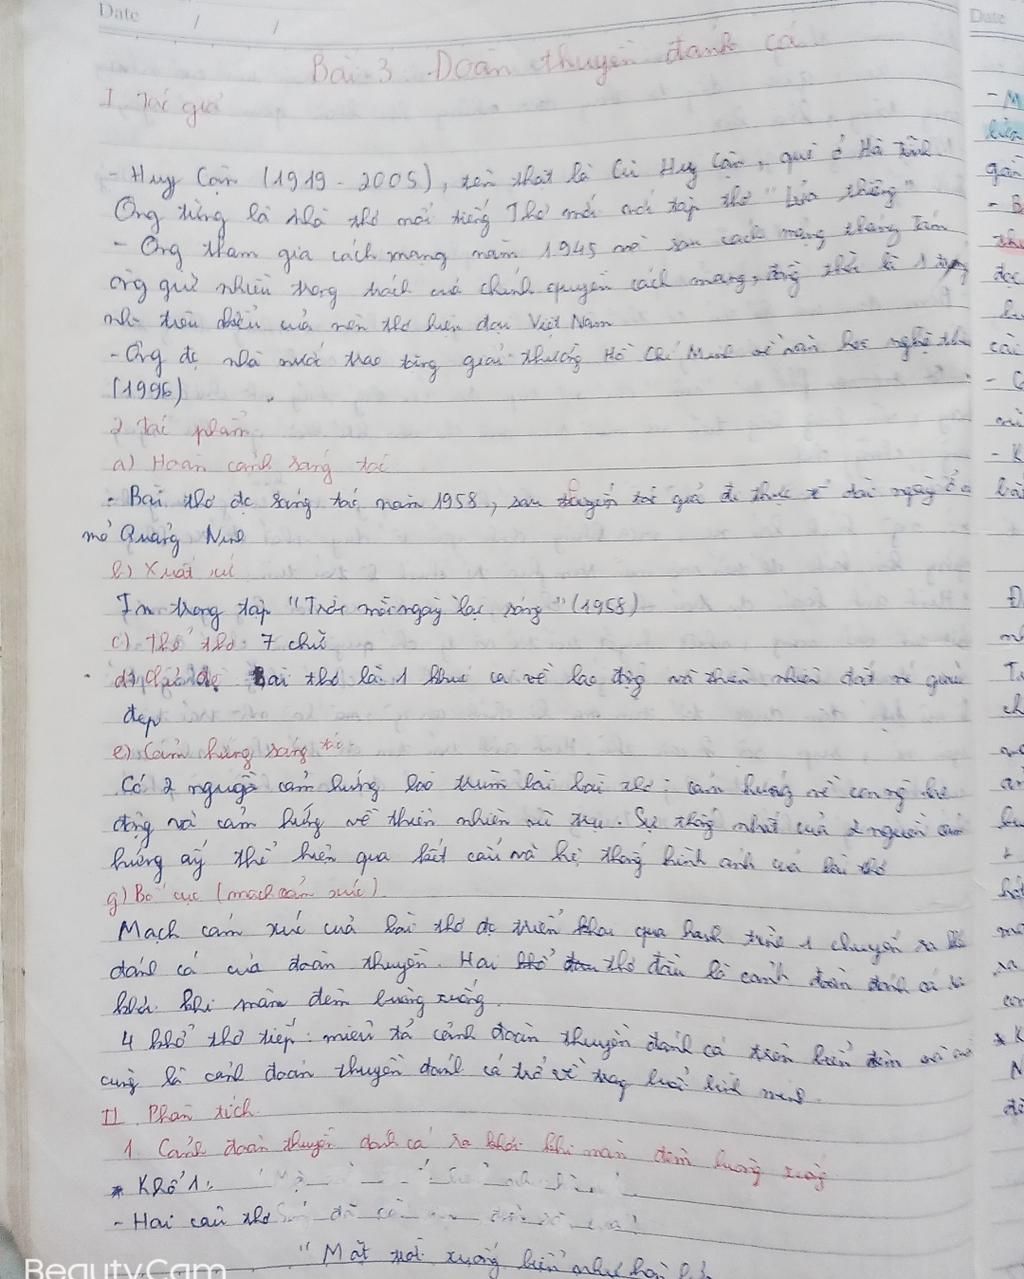 Date / /
Bài 3 Đoàn thuyền đánh cá
I. Tác giả
- Huy Cận (1919 - 2005), tên thật là Cù Huy Cận, quê ở Hà Tĩnh.
Ông từng là nhà thơ nổi tiếng Thơ mới với tập thơ "Lửa thiêng"
- Ông tham gia cách mạng năm 1945 và sau cách mạng tháng Tám
ông giữ nhiều trọng trách của chính quyền cách mạng, đồng thời là 1
nhà tiêu biểu của nền thơ hiện đại Việt Nam
- Ông đc nhà nước trao tặng giải thưởng Hồ Chí Minh về văn học nghệ
(1996)
2 Tác phẩm
a) Hoàn cảnh sáng tác
- Bài thơ đc sáng tác năm 1958, sau chuyến tác giả đi thực tế dài ngày ở
mỏ Quảng Ninh
b) Xuất xứ
In trong tập "Trời mỗi ngày lại sáng" (1958)
c) Thể thơ: 7 chữ
d) Chủ đề Bài thơ là 1 khúc ca về lao động và thiên nhiên đất nc giàu
đẹp
e) Cảm hứng sáng tác
Có 2 nguồn cảm hứng bao trùm bài thơ: cảm hứng về con ng lao
động và cảm hứng về thiên nhiên vũ trụ. Sự thống nhất của 2 nguồn cảm
hứng ấy thể hiện qua kết cấu và hệ thống hình ảnh của bài thơ
g) Bố cục (mạch cảm xúc)
Mạch cảm xúc của bài thơ đc triển khai qua hành trình 1 chuyến ra
đánh cá của đoàn thuyền. Hai khổ thơ đầu là cảnh đoàn đánh cá ra
khơi khi màn đêm buông xuống.
4 khổ thơ tiếp: miêu tả cảnh đoàn thuyền đánh cá trên biển đêm và
cùng là cảnh đoàn thuyền đánh cá trở về trong buổi bình minh.
II Phân tích
1. Cảnh đoàn thuyền đánh cá ra khơi khi màn đêm buông xuống
* Khổ 1:
- Hai câu thơ
"Mặt trời xuống biển như hòn lửa
BeautyCam